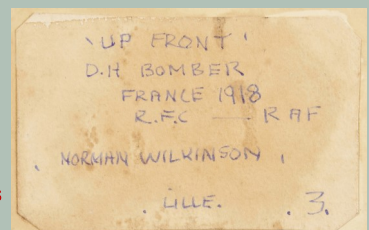 'UP FRONT'
D.H BOMBER
FRANCE 1918
R.F.C — R AF
. NORMAN WILKINSON .
. LILLE. . 3.
s